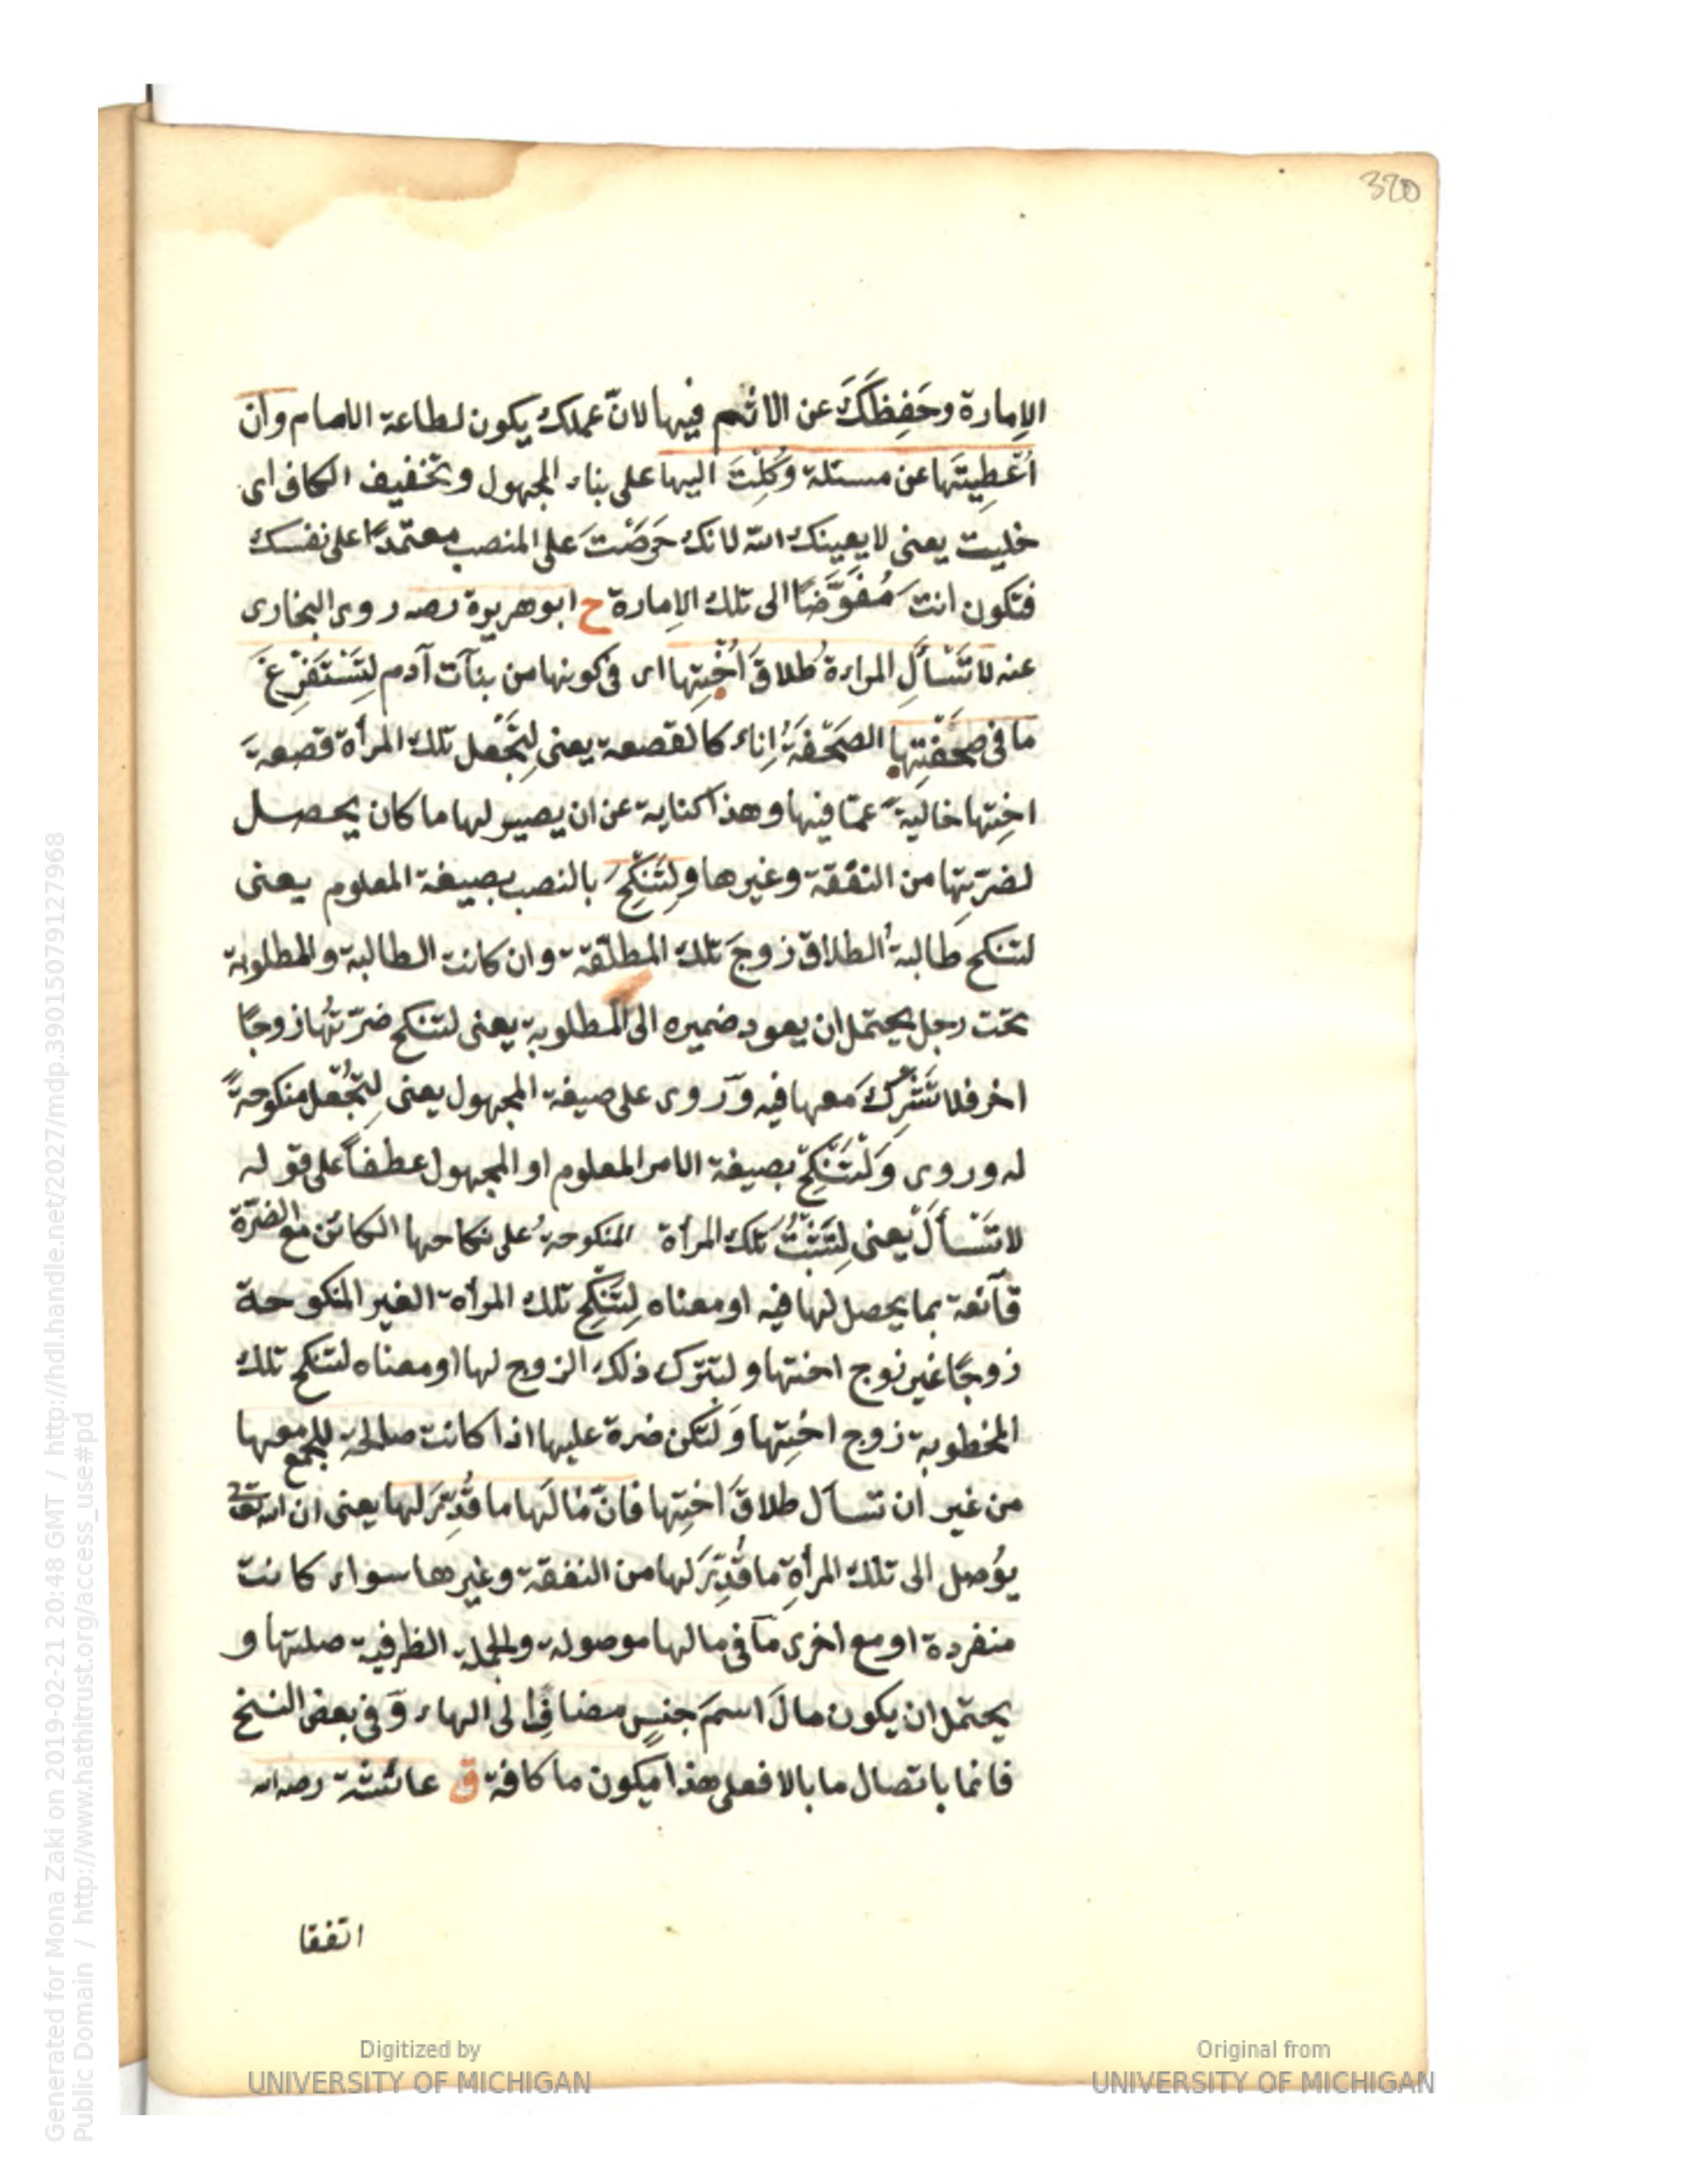 320
الاِمارة وحَفِظَكَ عن الاثم فيها لانّ عملك يكون لطاعة الامام وان
اُعْطِيتَهاعن مسئلة وُكِلْتَ اليها على بناء المجهول وتخفيف الكاف اى
خليت يعنى لا يعينك الله لانك حَرَصْتَ على المنصب معتمدًا على نفسك
فتكون انت مُفَوَّضًا الى تلك الاِمارة خ ابو هريرة رضه روى البخارى
عنه لا تَسْأَلِ المراءة طلاقَ اُخْتِها اى فى كونها من بنآت آدم لِتَسْتَفْرِغَ
ما فى صَحْفَتِها الصَحْفَةُ اِناء كالقصعة يعنى لِتَجْعل تلك المرأة قصعةَ
اختِها خاليةً عمّا فيها وهذا كناية عن ان يصير لها ما كان يحصل
لضرّتِها من النفقة وغيرها ولِتَنْكِحَ بالنصب بصيغة المعلوم يعنى
لتنكح طالبةُ الطلاق زوجَ تلك المطلّقة وان كانت الطالبة والمطلوبة
تحت رجل يحتمل ان يعود ضميره الى المطلوبة يعنى لتنكح ضرّتُها زوجًا
اخر فلا تَشْتَرِكَ معها فيه وروى على صيغة المجهول يعنى لِتُجْعل منكوحةً
له وروى وَلْتَنْكِحْ بصيغة الامر المعلوم او المجهول عطفًا على قوله
لا تَسْأَلْ يعنى لِتَثْبُتْ تلك المرأة المنكوحةُ على نكاحها الكائن مع الضرّة
قآنعة بما يحصل لها فيه او معناه لِتَنْكِحْ تلك المرأة الغير المنكوحة
زوجًا غير زوج اختها ولتترك ذلك الزوج لها او معناه لتنكح تلك
المخطوبة زوج اختِها وَلْتكن ضرة عليها اذا كانت صالحة للجمع معها
من غير ان تسأل طلاقَ اختِها فانّ مَالَها ما قُدِّرَ لها يعنى ان الله تعا
يؤصل الى تلك المرأةِ ما قُدِّرَ لها من النفقة وغيرها سواء كانت
منفردة او مع اخرى مآ فى مالها موصولة والجملة الظرفية صلتها و
يحتمل ان يكون مالَ اسمَ جنسٍ مضافٍ الى الهاء وفى بعض النسخ
فانما باتصال ما بالا فعلى هذا يكون ما كافة ق عائشة رضه الله
اتفقا
Generated for Mona Zaki on 2019-02-21 20:48 GMT / http://hdl.handle.net/2027/mdp.39015079127968
Public Domain / http://www.hathitrust.org/access_use#pd
Digitized by
UNIVERSITY OF MICHIGAN
Original from
UNIVERSITY OF MICHIGAN